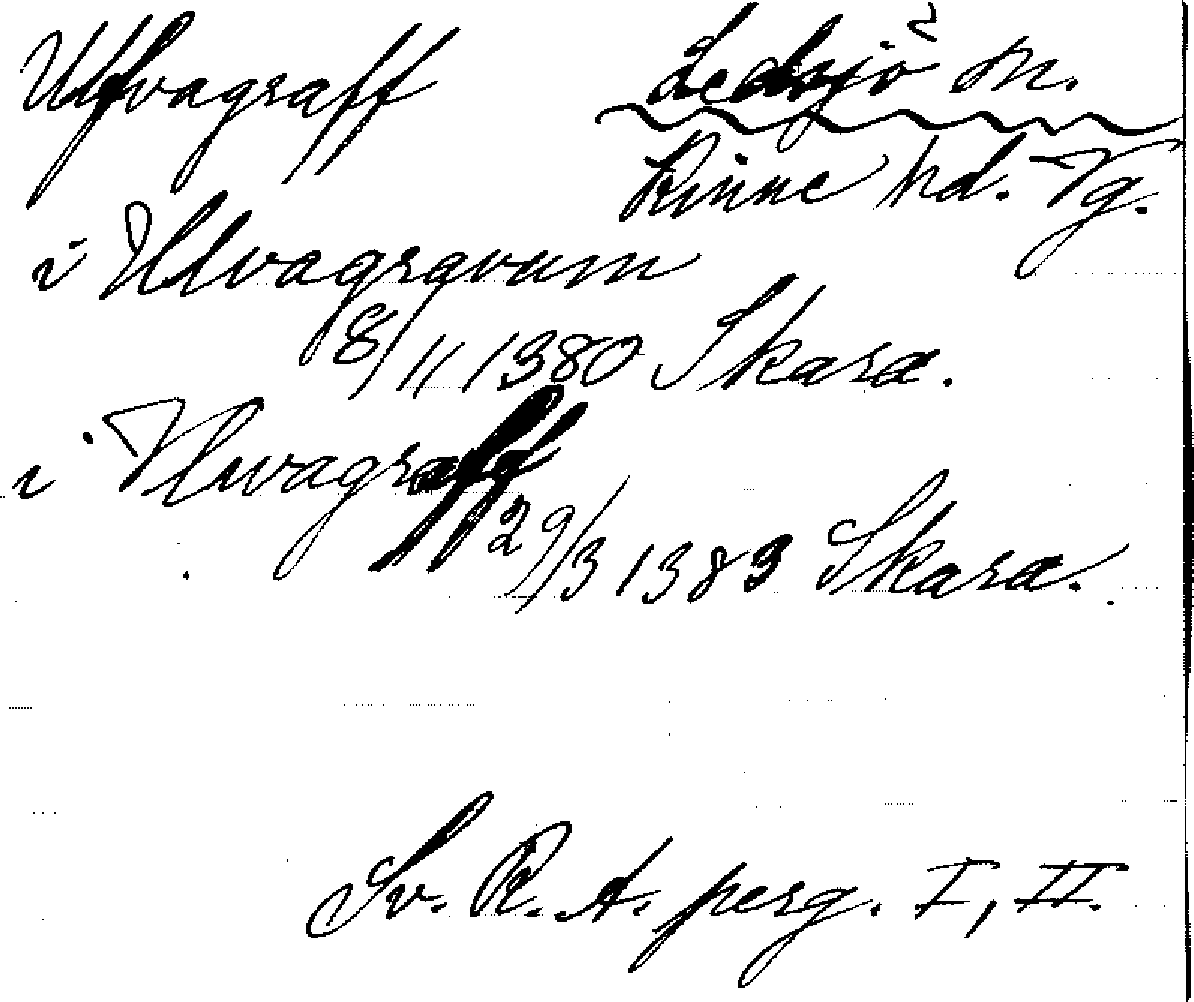 Ulfvagraff Ledsjö sn.
Kinne hd. Vg.
i Ulvagrgvum
8/11 1380 Skara.
i Vlwagraff
29/3 1383 Skara.
Sv. R. A. perg. I, II.